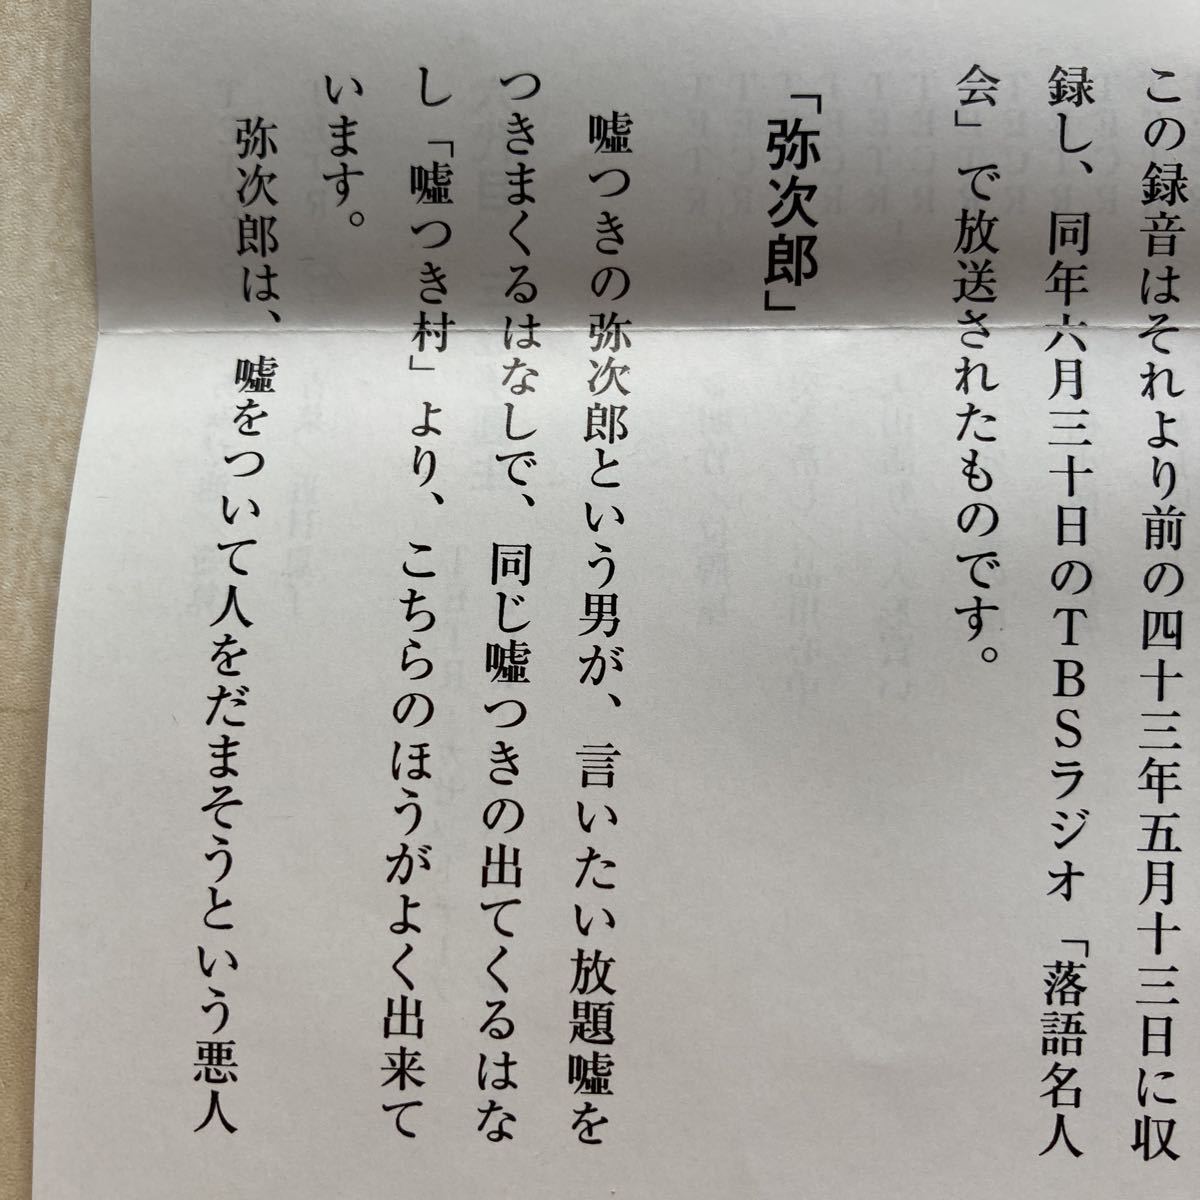 この録音はそれより前の四十三年五月十三日に収
録し、同年六月三十日のTBSラジオ「落語名人
会」で放送されたものです。
「弥次郎」
嘘つきの弥次郎という男が、言いたい放題嘘を
つきまくるはなしで、同じ嘘つきの出てくるはな
し「嘘つき村」より、こちらのほうがよく出来て
います。
弥次郎は、嘘をついて人をだまそうという悪人